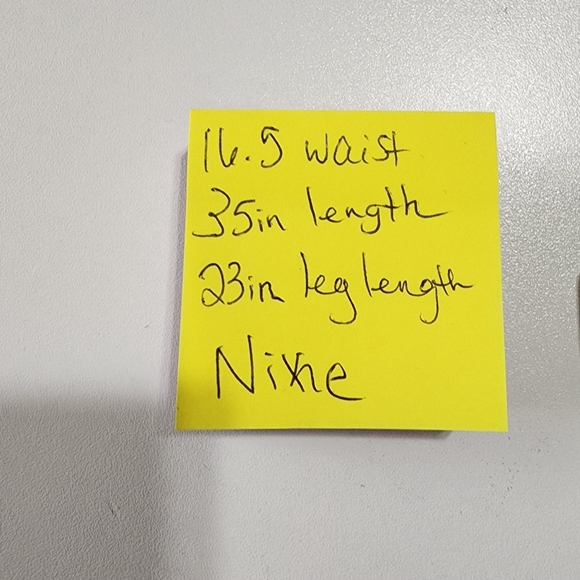 16.5 waist
35in length
23in leg length